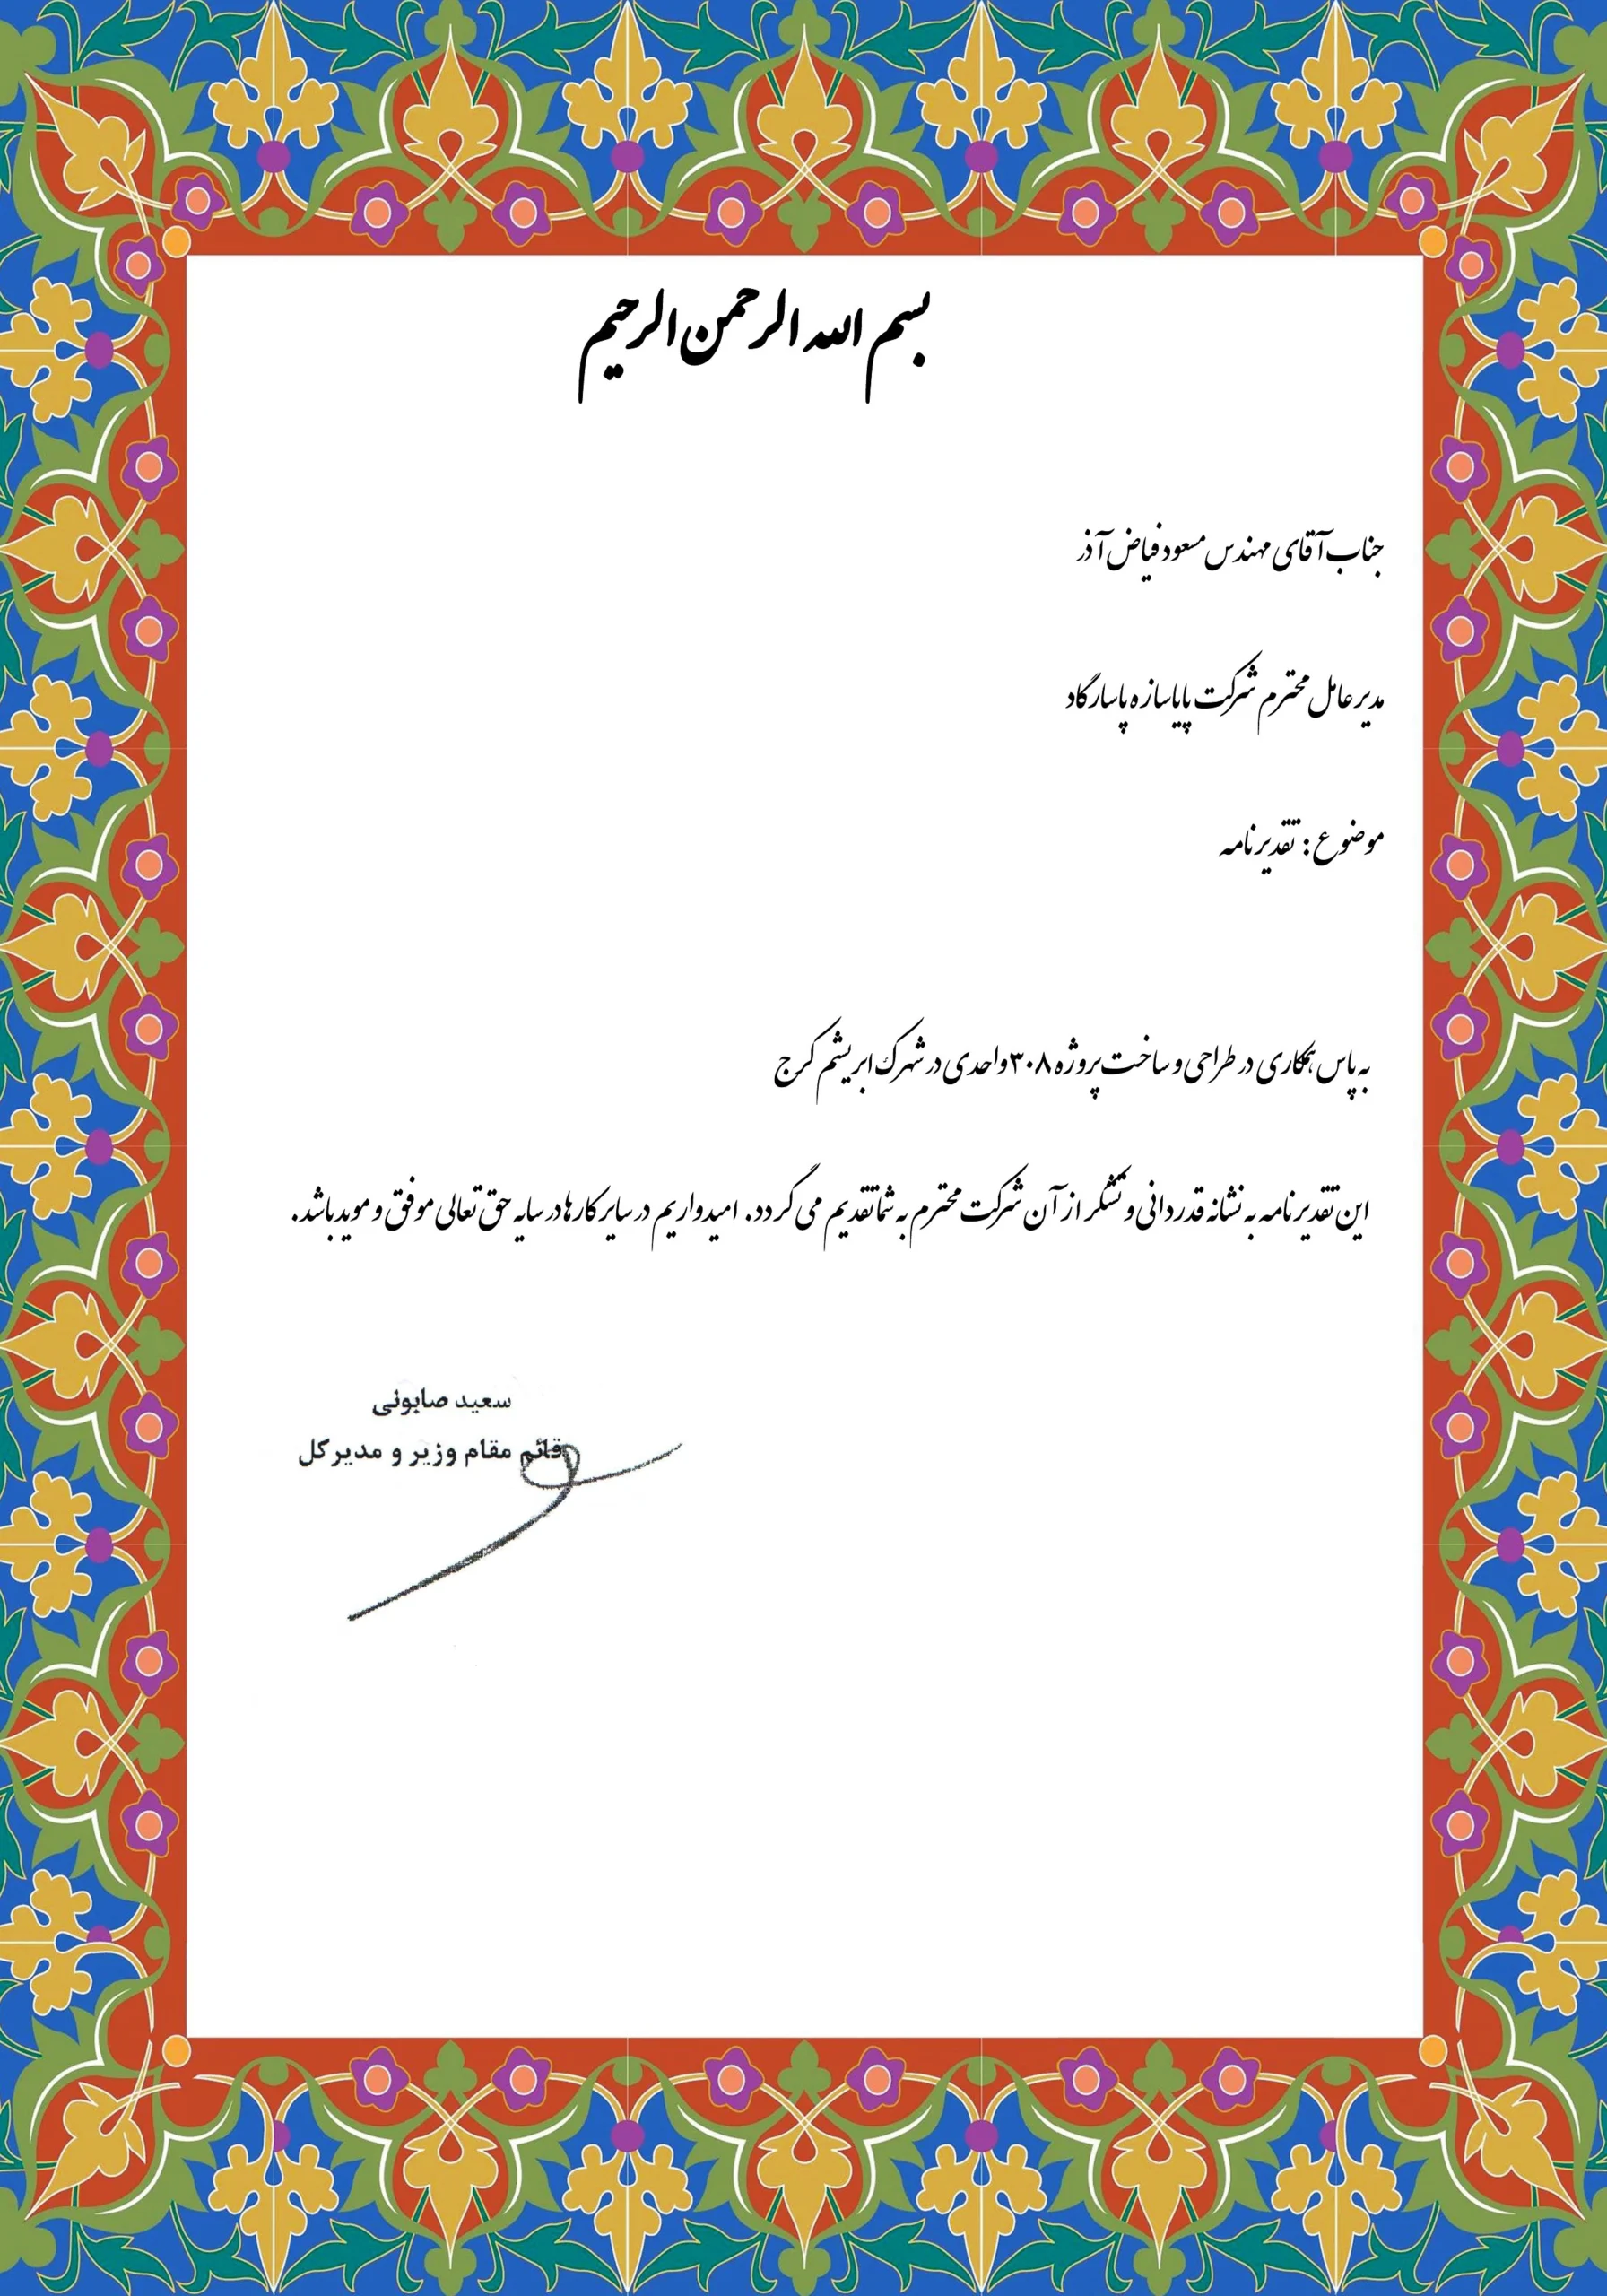 بسم الله الرحمن الرحیم
جناب آقای مهندس مسعود فیاض آذر
مدیر عامل محترم شرکت پایاسازه پاسارگاد
موضوع : تقدیرنامه
به پاس همکاری در طراحی و ساخت پروژه ۳۰۸ واحدی در شهرک ابریشم کرج
این تقدیرنامه به نشانه قدردانی و تشکر از آن شرکت محترم به شما تقدیم می گردد. امیدواریم در سایر کارها در سایه حق تعالی موفق و موید باشد.
سعید صابونی
قائم مقام وزیر و مدیرکل